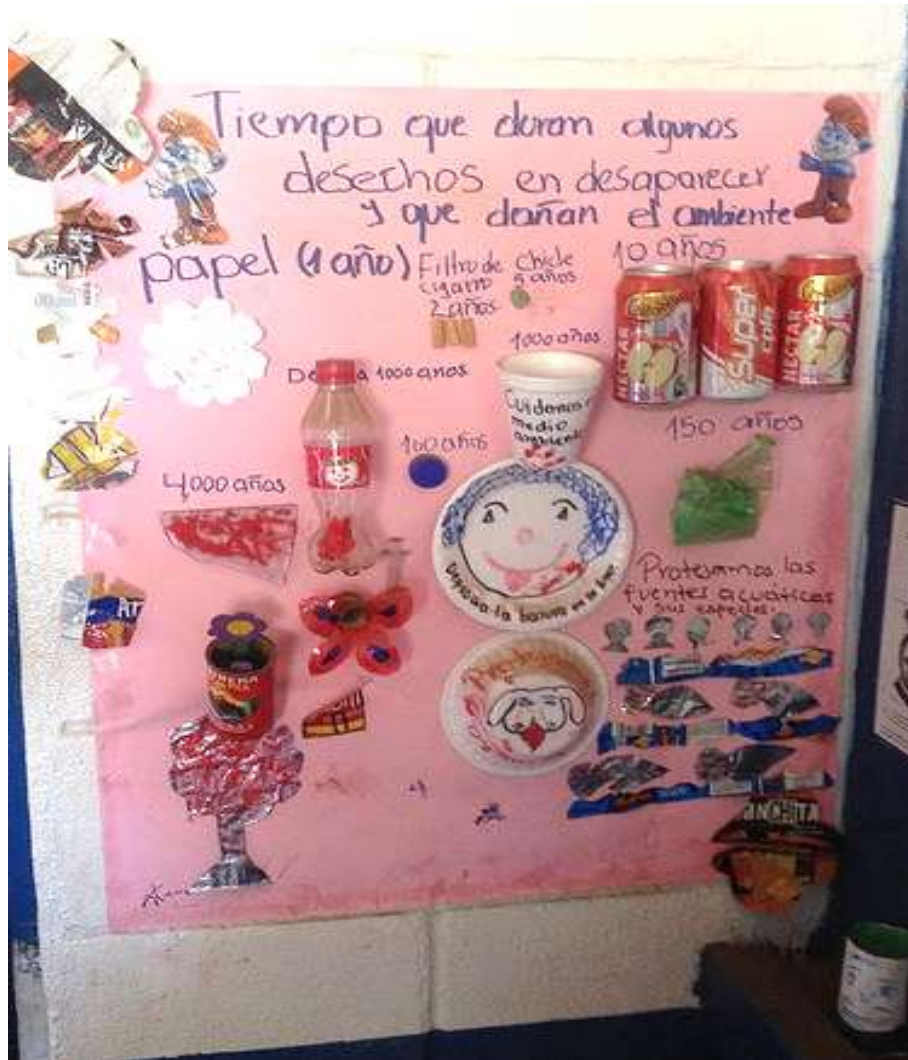 Tiempo que duran algunos
desechos en desaparecer
y que dañan el ambiente
papel (1 año)
Filtro de
cigarro
2 años
Chicle
5 años
10 años
NECTAR
Super
cola
NECTAR
De a 1000 años
1000 años
Cuidemos
medio
ambiente
100 años
150 años
4000 años
Deposita la basura en su lugar
Protejamos las
fuentes acuáticas
y sus especies.